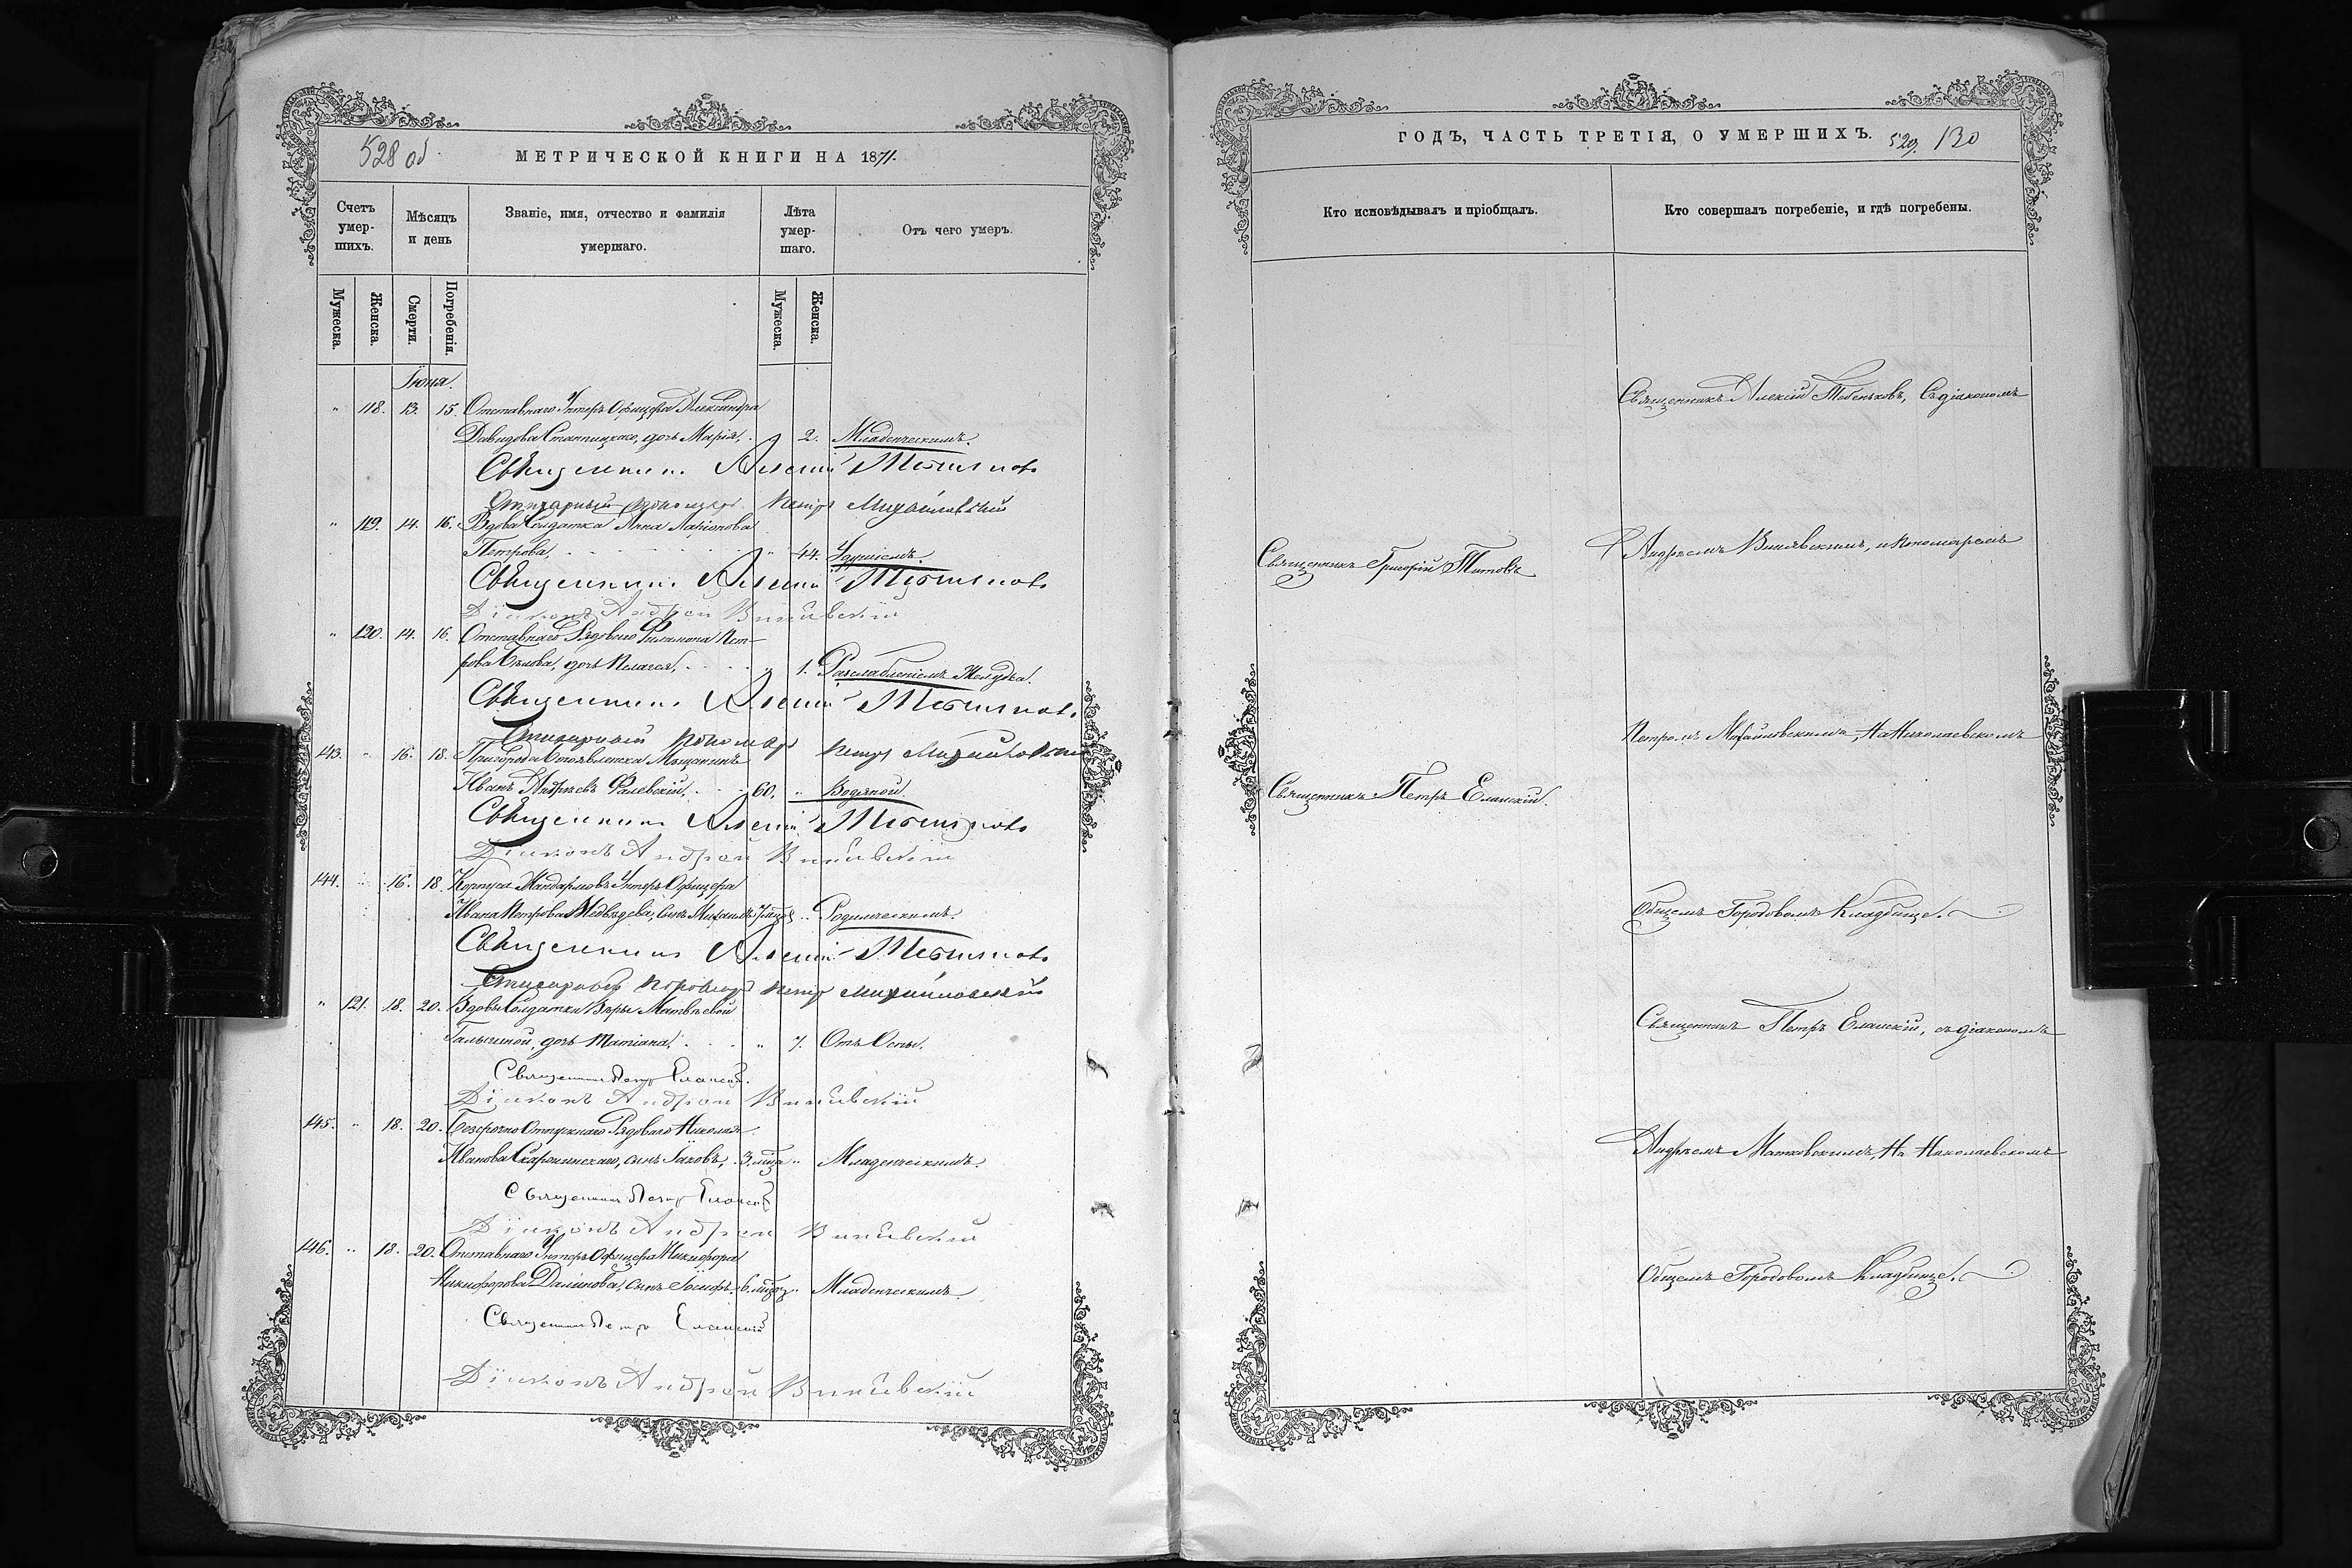 528 об.
МЕТРИЧЕСКОЙ КНИГИ НА 1871.
Счетъ умер-шихъ.
Мѣсяцъ и день
Званіе, имя, отчество и фамилія умершаго.
Лѣта умер-шаго.
Отъ чего умеръ.
Мужеска.
Женска.
Смерти.
Погребенія.
Мужеска.
Женска.
Іюня.
" 118. 13. 15. Отставнаго Унтеръ Офицера Александра
Давидова дочь Марія, 2. Младенческимъ.
Священникъ Алексій Тебеньковъ
Стихарный пономарь Петръ Михайловскій
" 119. 14. 16. Вдова Солдатка Анна Ларіонова
Петрова, " 44. Удушіемъ.
Священникъ Алексій Тебеньковъ
Діаконъ Андрей
" 120. 14. 16. Отставнаго Рядоваго Филимона Пет-
рова Бѣлова, дочь Пелагея, " 1. Разслабленіемъ Желудка.
Священникъ Алексій Тебеньковъ
Стихарный пономарь Петръ Михайловскій
143. " 16. 18. Пригорода Мѣщанинъ
Иванъ Андреевъ Фалевскій, 60. " Водяной.
Священникъ Алексій Тебеньковъ
Діаконъ Андрей
144. " 16. 18. Корпуса Жандармовъ Унтеръ Офицера
Ивана Петрова Медвѣдева, сынъ Михаилъ " Родимческимъ.
Священникъ Алексій Тебеньковъ
Стихарный пономарь Петръ Михайловскій
" 121. 18. 20. Вдовы Солдатки Вѣры Матвѣевой
дочь Татіана, " 7. Отъ Оспы.
Священникъ Петръ Еланскій.
Діаконъ Андрей
145. " 18. 20. Безсрочно Отпускнаго Рядоваго Николая
Иванова сынъ Іаковъ, 3. мѣсца " Младенческимъ.
Священникъ Петръ Еланскій
Діаконъ Андрей
146. " 18. 20. Отставнаго Унтеръ Офицера Никифора
Никифорова сынъ Іосифъ, 6. " Младенческимъ.
Священникъ Петръ Еланскій
Діаконъ Андрей
ГОДЪ, ЧАСТЬ ТРЕТІЯ, О УМЕРШИХЪ. 529. 130
Кто исповѣдывалъ и пріобщалъ.
Кто совершалъ погребеніе, и гдѣ погребены.
Священникъ Алексій Тебеньковъ, Съ діакономъ
Андреемъ и Пономаремъ
Священникъ Григорій Титовъ
Петромъ Михайловскимъ, На Николаевскомъ
Священникъ Петръ Еланскій.
Общемъ Городовомъ Кладбище.
Священникъ Петръ Еланскій, съ діакономъ
Андреемъ На Николаевскомъ
Общемъ Городовомъ Кладбище.